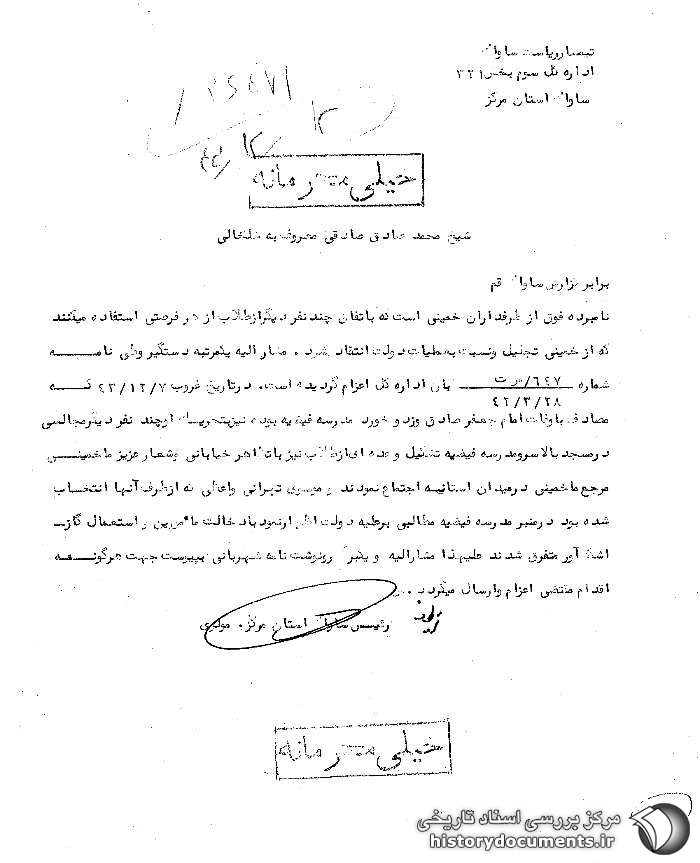 تیمسار ریاست ساواک
اداره کل سوم بخش ۳۲۱
ساواک استان مرکز
خیلی محرمانه
شیخ محمد صادق صادقی معروف به خلخالی
برابر گزارش ساواک قم
نامبرده فوق از طرفداران خمینی است که باتفاق چند نفر دیگر از طلاب از هر فرصتی استفاده میکنند
که از خمینی تجلیل و نسبت به عملیات دولت انتقاد شود. مشارالیه یکمرتبه دستگیر و طی نامه
شماره ۶۲۷/ بان اداره کل اعزام گردیده است. در تاریخ غروب ۲۳/۱۲/۷ که
۴۲/۳/۲۸
مصادف با وفات امام جعفر صادق وزد و خورد مدرسه فیضیه بوده نیز بتحریک او چند نفر دیگر مجالسی
در مسجد بالاسر و مدرسه فیضیه تشکیل و عده ای از طلاب نیز با تظاهر خیابانی و شعار عزیز ما خمینی
مرجع ما خمینی در میدان آستانه اجتماع نمودند و موسوی تهرانی واعظی که از طرف آنها انتخاب
شده بود در منبر مدرسه فیضیه مطالبی برعلیه دولت اظهار نمود با دخالت مامورین و استعمال گاز
اشک آور متفرق شدند علیهذا مشارالیه و یکبرگ رونوشت نامه شهربانی بپیوست جهت هرگونه
اقدام مقتضی اعزام و ارسال میگردد.
رئیس ساواک استان مرکز. مولوی
خیلی محرمانه
مرکز بررسی اسناد تاریخی
historydocuments.ir